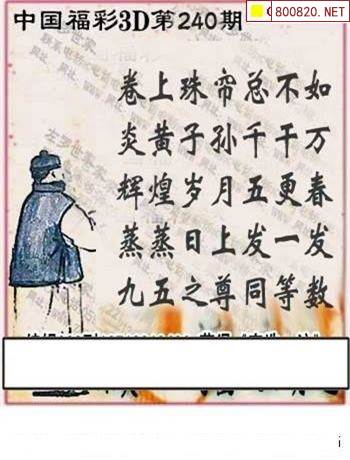 中国福彩3D第240期
800820.NET
卷上珠帘总不如
炎黄子孙千千万
辉煌岁月五更春
蒸蒸日上发一发
九五之尊同等数